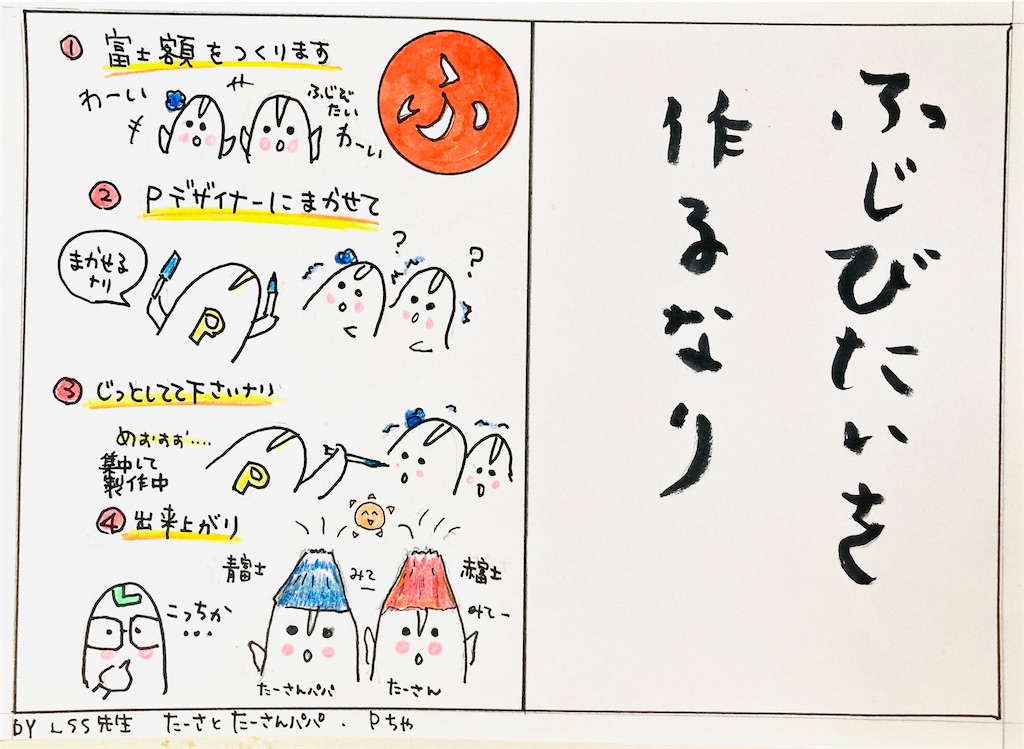 ふじびたいを
作るなり
ふ
① 富士額をつくります
わーい
ふじび
たい
わーい
② Pデザイナーにまかせて
まかせる
ナリ
?
?
P
③ じっとしてて下さいナリ
めおおお....
集中して
製作中
P
④ 出来上がり
青富士
みてー
赤富士
みてー
こっちか
...
たーさんパパ
たーさん
BY LSS先生 たーさとたーさんパパ. Pちゃ